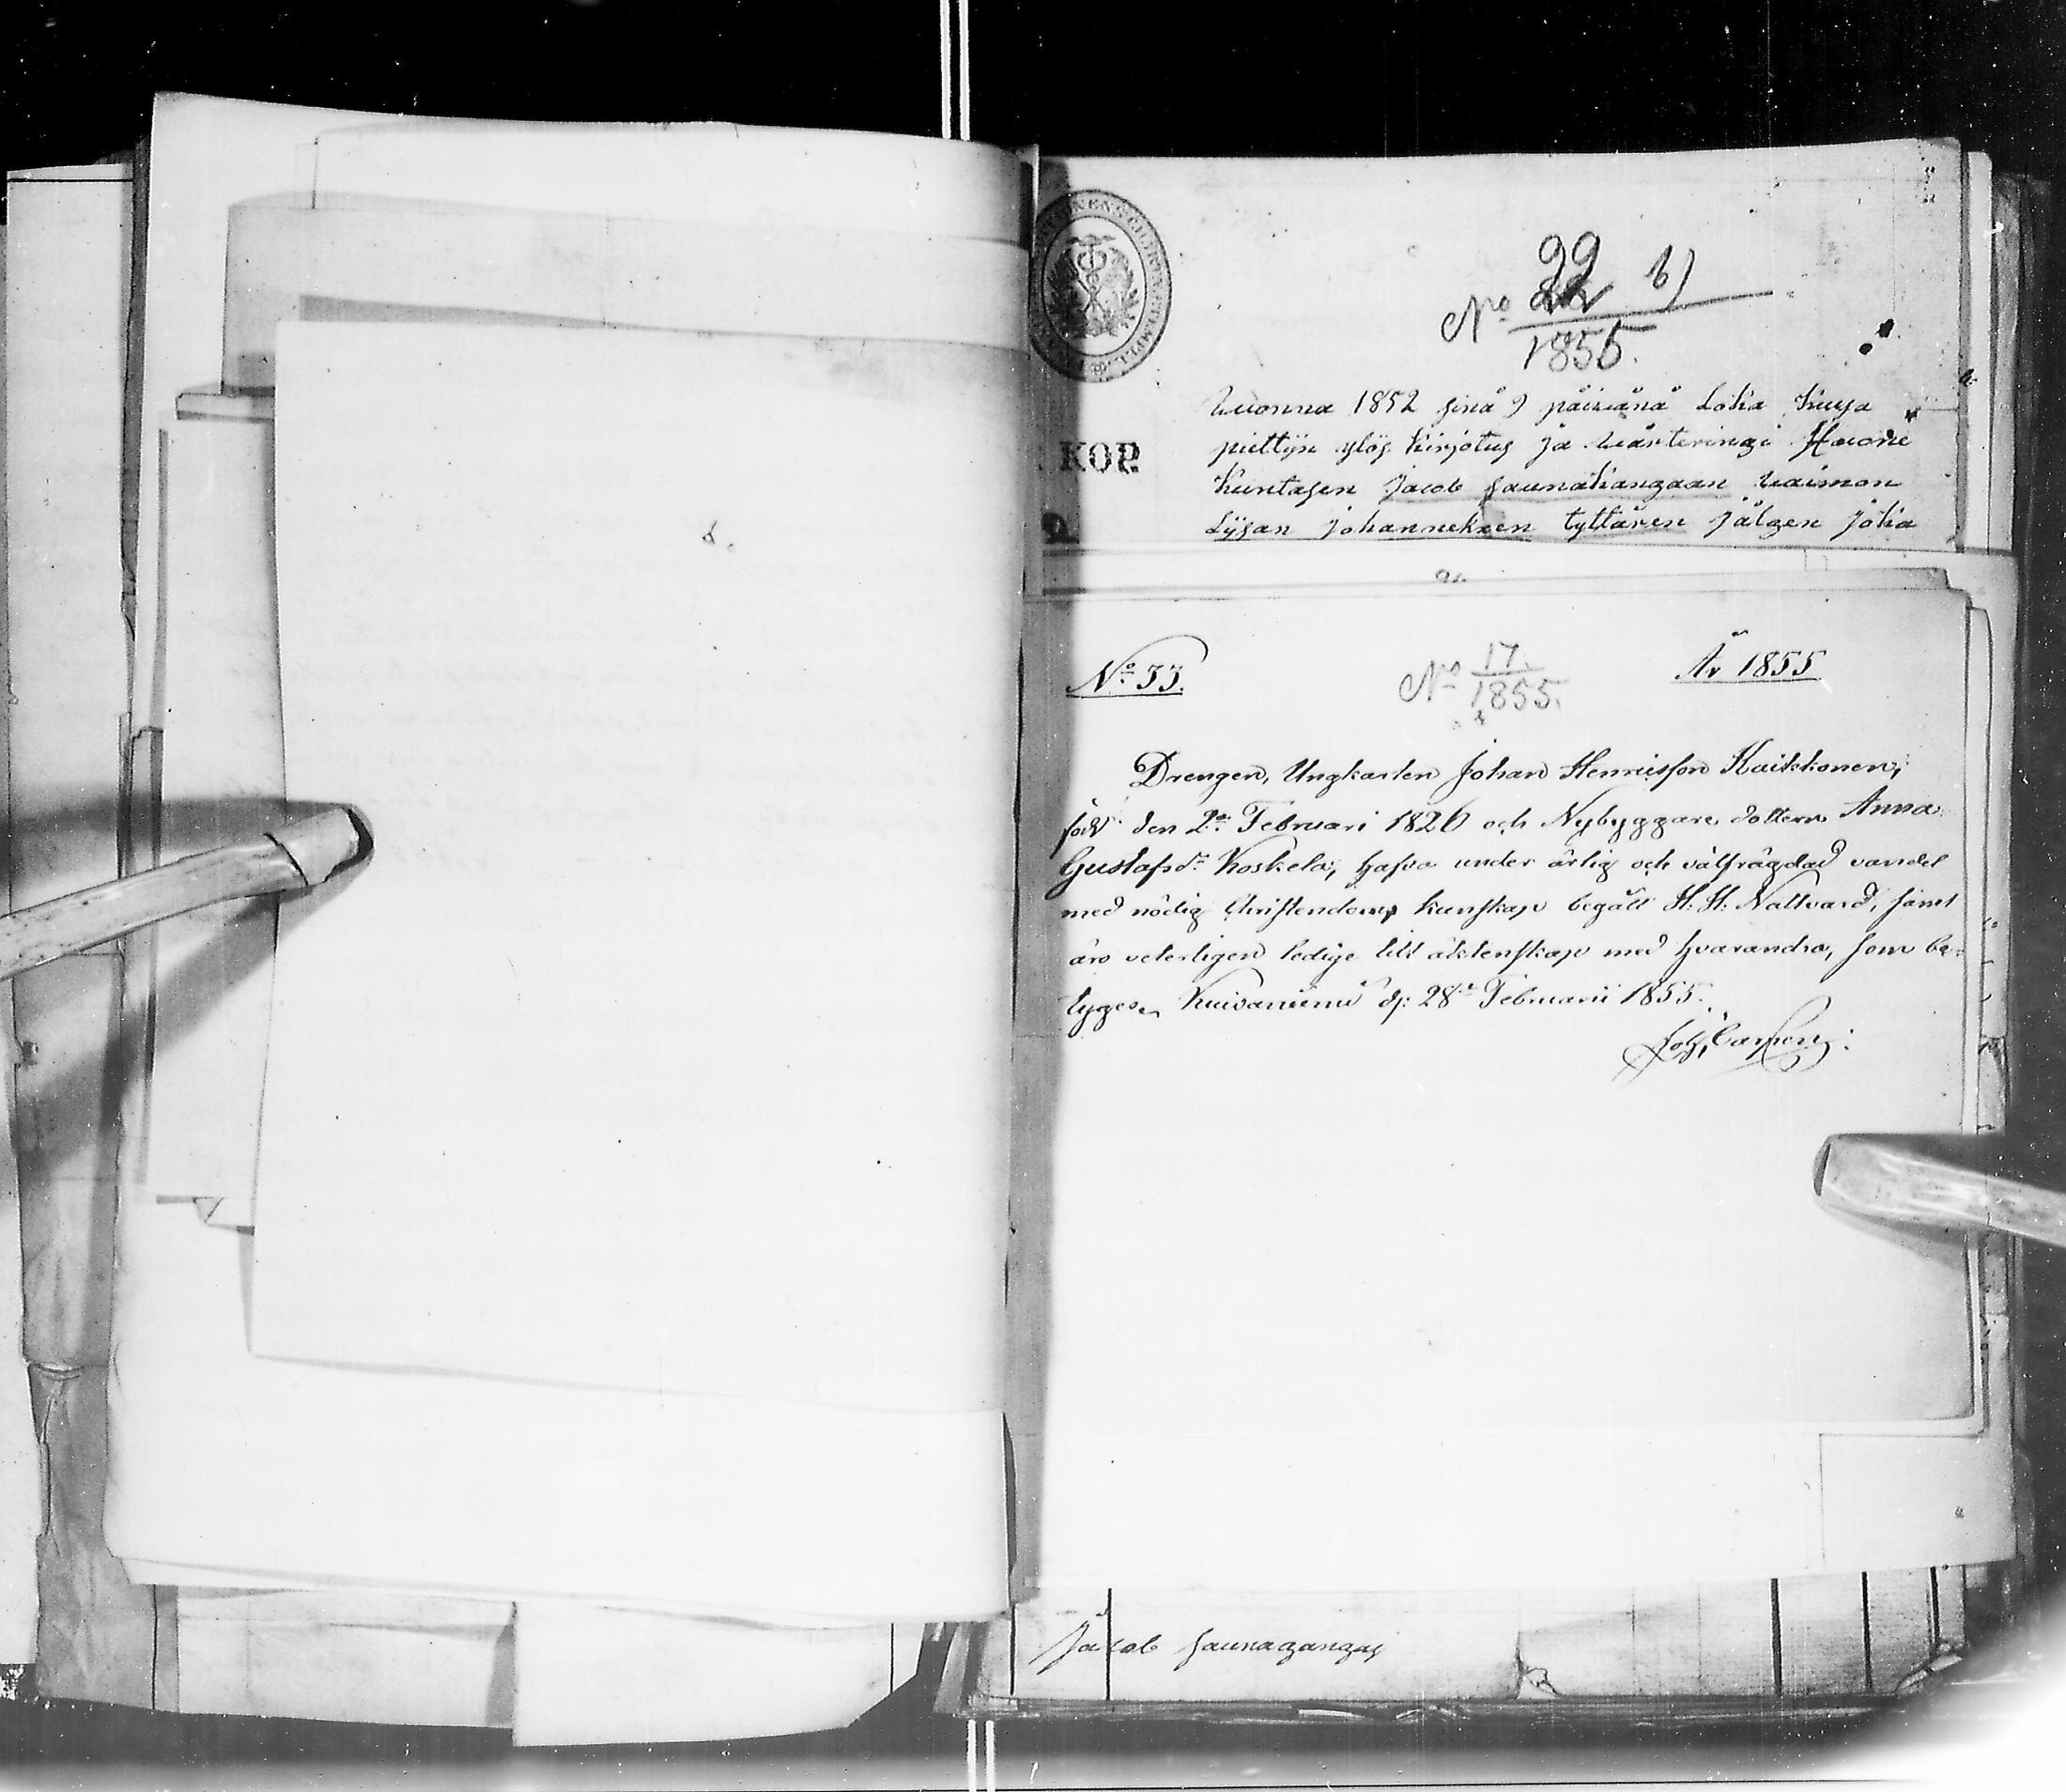 22 b)
No 22
1855.
KOP.
Wuonna 1852 sinä 9 päiwänä Loka Kuusa
piettiin ylös kirjotus ja wärteringi Huone
Kuntasen Jacob Saunakangaan Waimon
Liisan Johanneksen tyttären jälgen joka
No 33.
No 17.
1855.
År 1855
Drengen, Ungkarlen Johan Henricsson Kaikkonen,
född den 2a Februari 1826 och Nybyggare dottern Anna
Gustafsdr Koskela, hafva under ärlig och välfrägdad vandel
med nödig Christendoms kunskap begått H. H. Nattvard, samt
äro veterligen ledige till äktenskap med hvarandra, som be-
tyges. Kuivaniemi d: 28de Februarii 1855.
Jacob Saunagangas